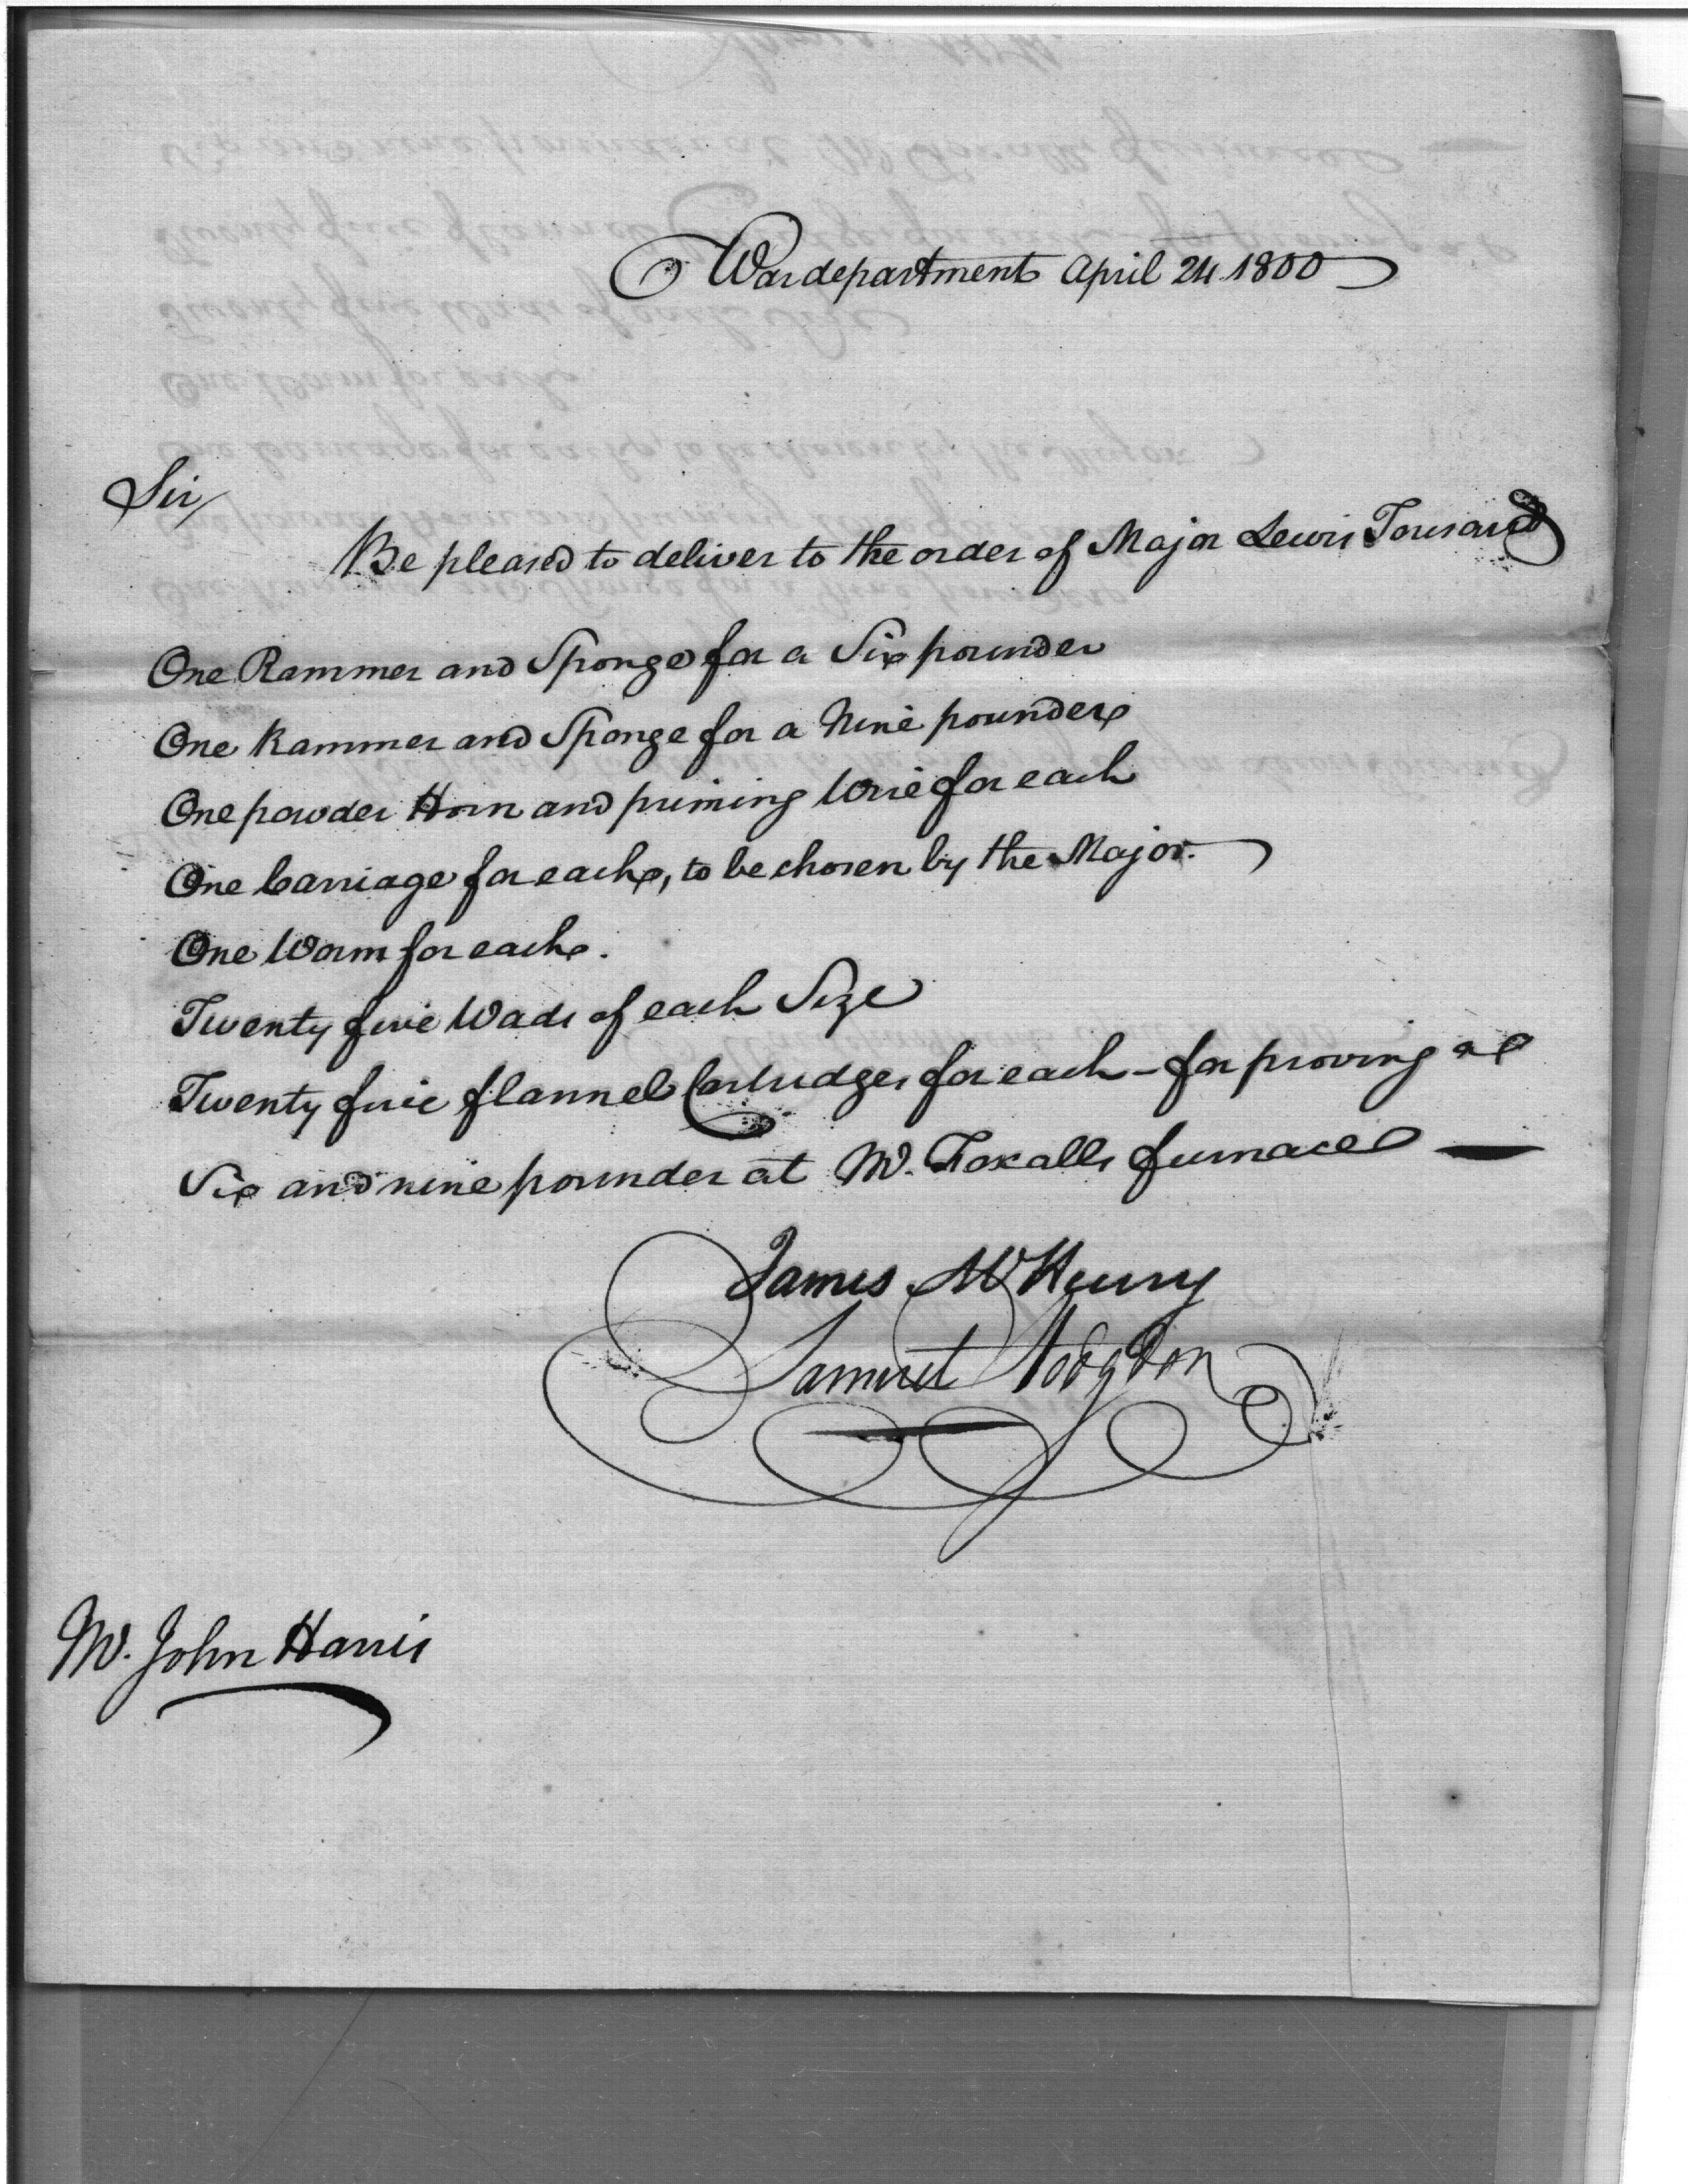 War department April 24 1800
Sir/
Be pleased to deliver to the order of Major Lewis Tousard
One Rammer and Sponge for a Six pounder
One Rammer and Sponge for a Nine pounder
One powder Horn and priming Wire for each
One Carriage for each, to be chosen by the Major.
One Worm for each.
Twenty five Wads of each Size
Twenty five flannel Cartridges for each - for proving a
Six and nine pounder at Mr. Foxalls furnace —
James McHenry
Samuel Hodgdon
Mr. John Harris